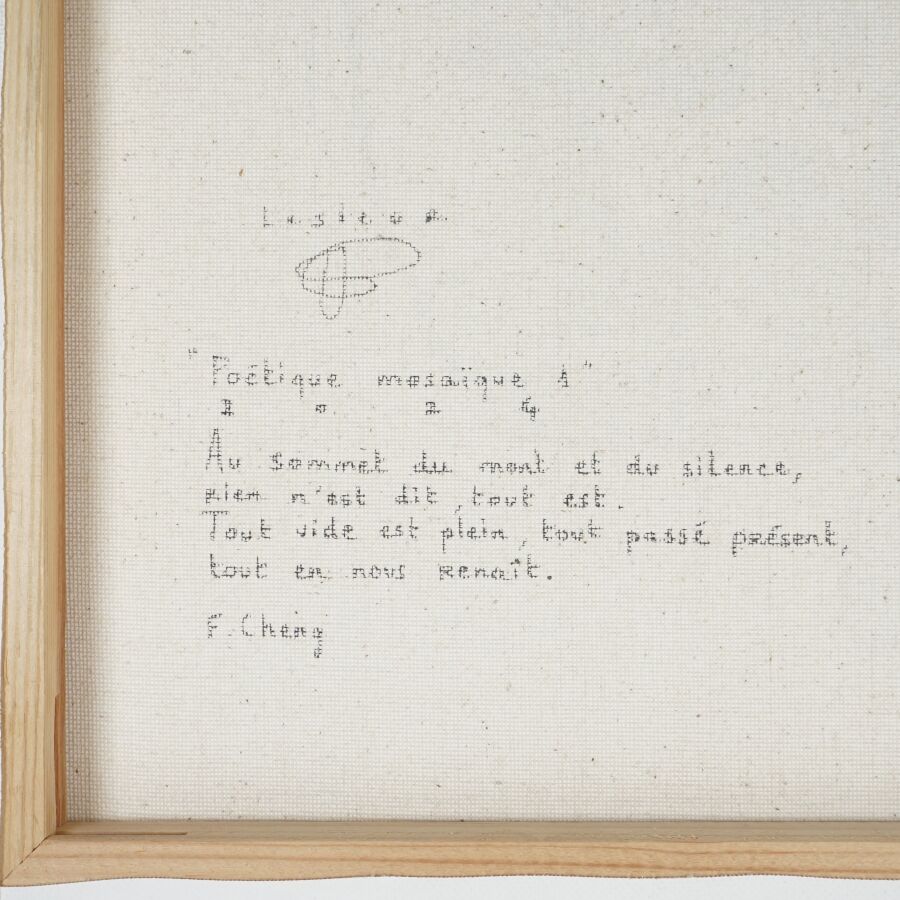 "Poétique mosaïque 4"
2 0 2 4
Au sommet du mont et du silence,
rien n'est dit, tout est.
Tout vide est plein, tout passé présent,
tout en nous renaît.
F. Cheng